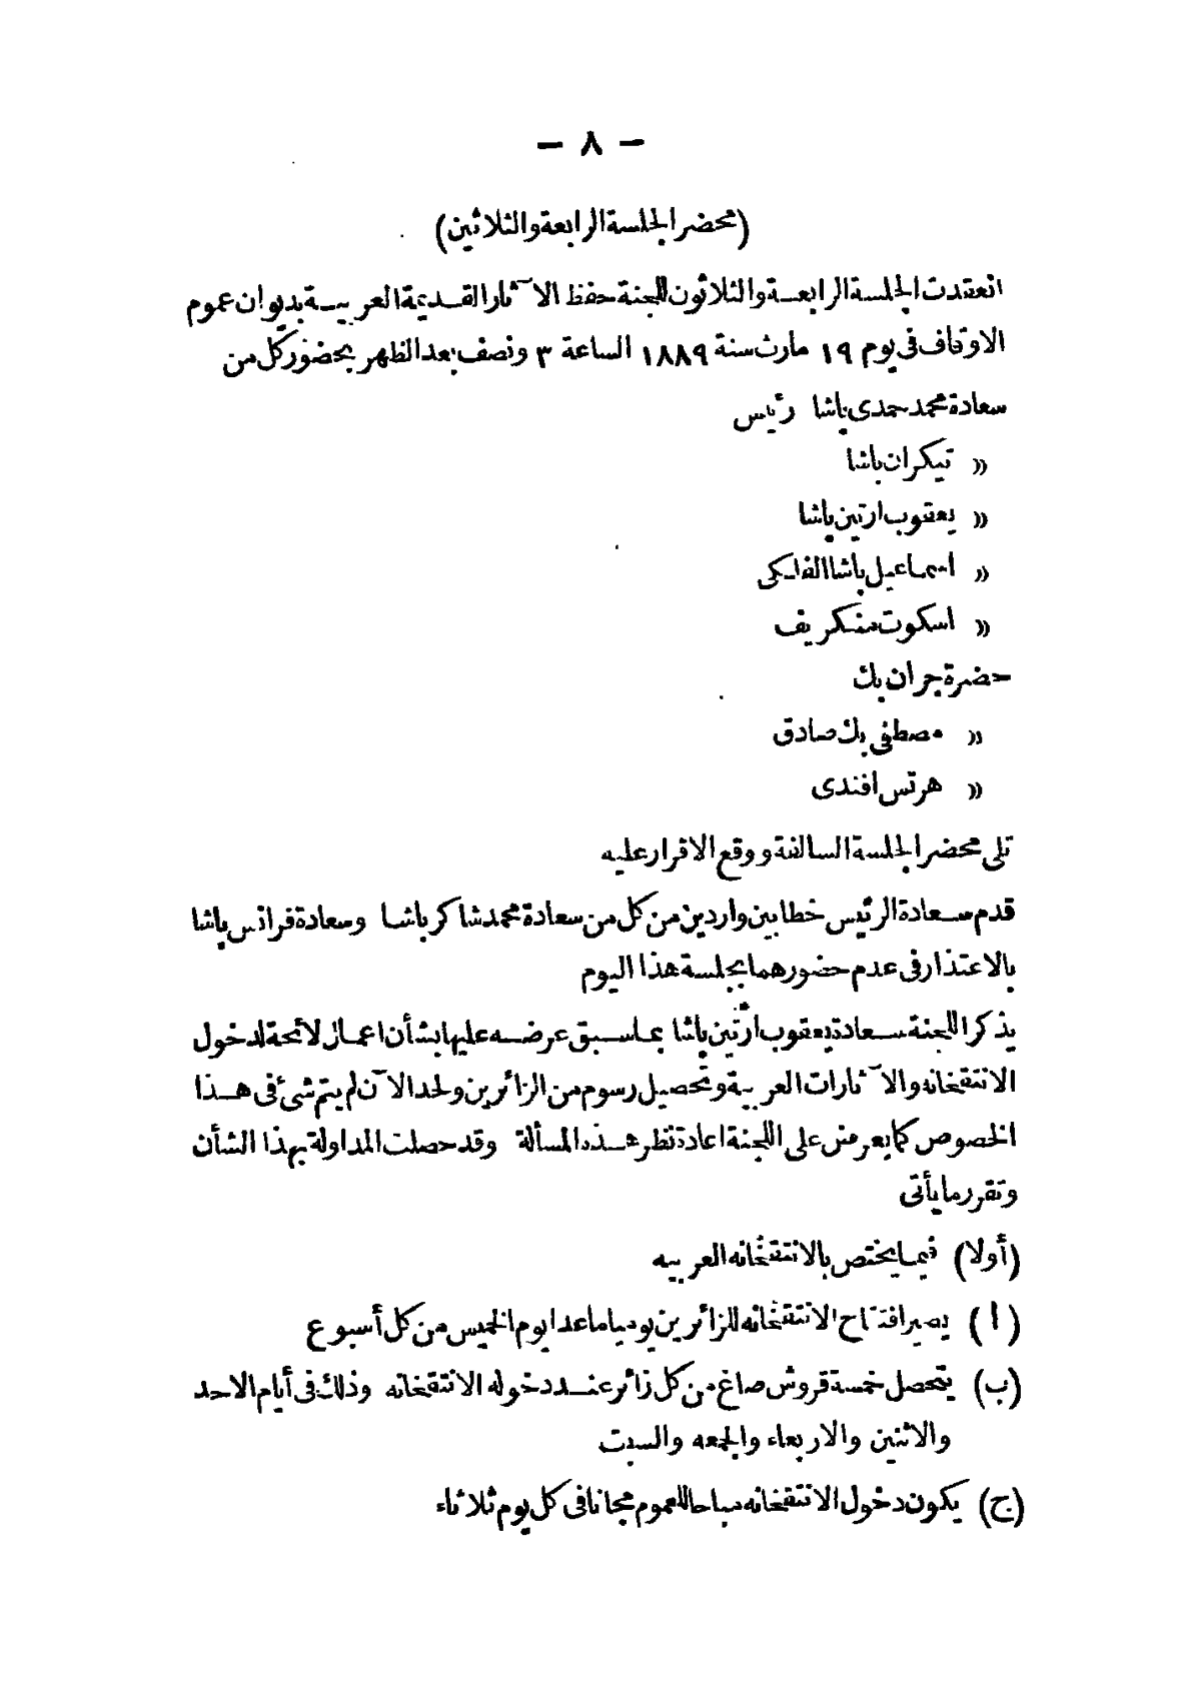 — ٨ —
(محضر الجلسة الرابعة والثلاثين)
انعقدت الجلسة الرابعة والثلاثون للجنة حفظ الآثار القديمة العربية بديوان عموم
الاوقاف فى يوم ١٩ مارث سنة ١٨٨٩ الساعة ٣ ونصف بعد الظهر بحضور كل من
سعادة محمد حمدى باشا رئيس
« تيكران باشا
« يعقوب ارتين باشا
« اسماعيل باشا الفلكى
« اسكوت منكريف
حضرة جران بك
« مصطفى بك صادق
« هرتس افندى
تلى محضر الجلسة السالفة ووقع الاقرار عليه
قدم سعادة الرئيس خطابين واردين من كل من سعادة محمد شاكر باشا وسعادة فرانس باشا
بالاعتذار فى عدم حضورهما بجلسة هذا اليوم
يذكر اللجنة سعادة يعقوب ارتين باشا بما سبق عرضه عليها بشأن اعمال لائحة لدخول
الانتقخانه والآثارات العربية وتحصيل رسوم من الزائرين ولحد الآن لم يتم شئ فى هذا
الخصوص كما يعرض على اللجنة اعادة نظر هذه المسألة وقد حصلت المداولة بهذا الشأن
وتقرر ما يأتى
(أولا) فيما يختص بالانتقخانه العربيه
(ا) يصير افتتاح الانتقخانه للزائرين يوميا ما عدا يوم الخميس من كل أسبوع
(ب) يتحصل خمسة قروش صاغ من كل زائر عند دخوله الانتقخانه وذلك فى أيام الاحد
والاثنين والاربعاء والجمعه والسبت
(ج) يكون دخول الانتقخانه مباحا للعموم مجانا فى كل يوم ثلاثاء